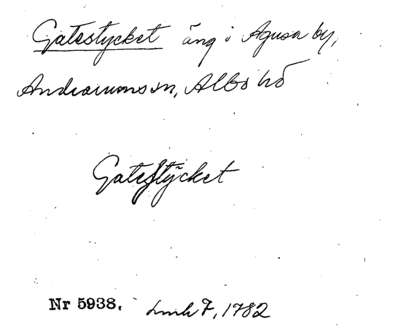 Gatestycket äng i Agusa by,
Andrarums sn, Albo hd
Gatestÿcket
Nr 5938. Lmh F, 1782